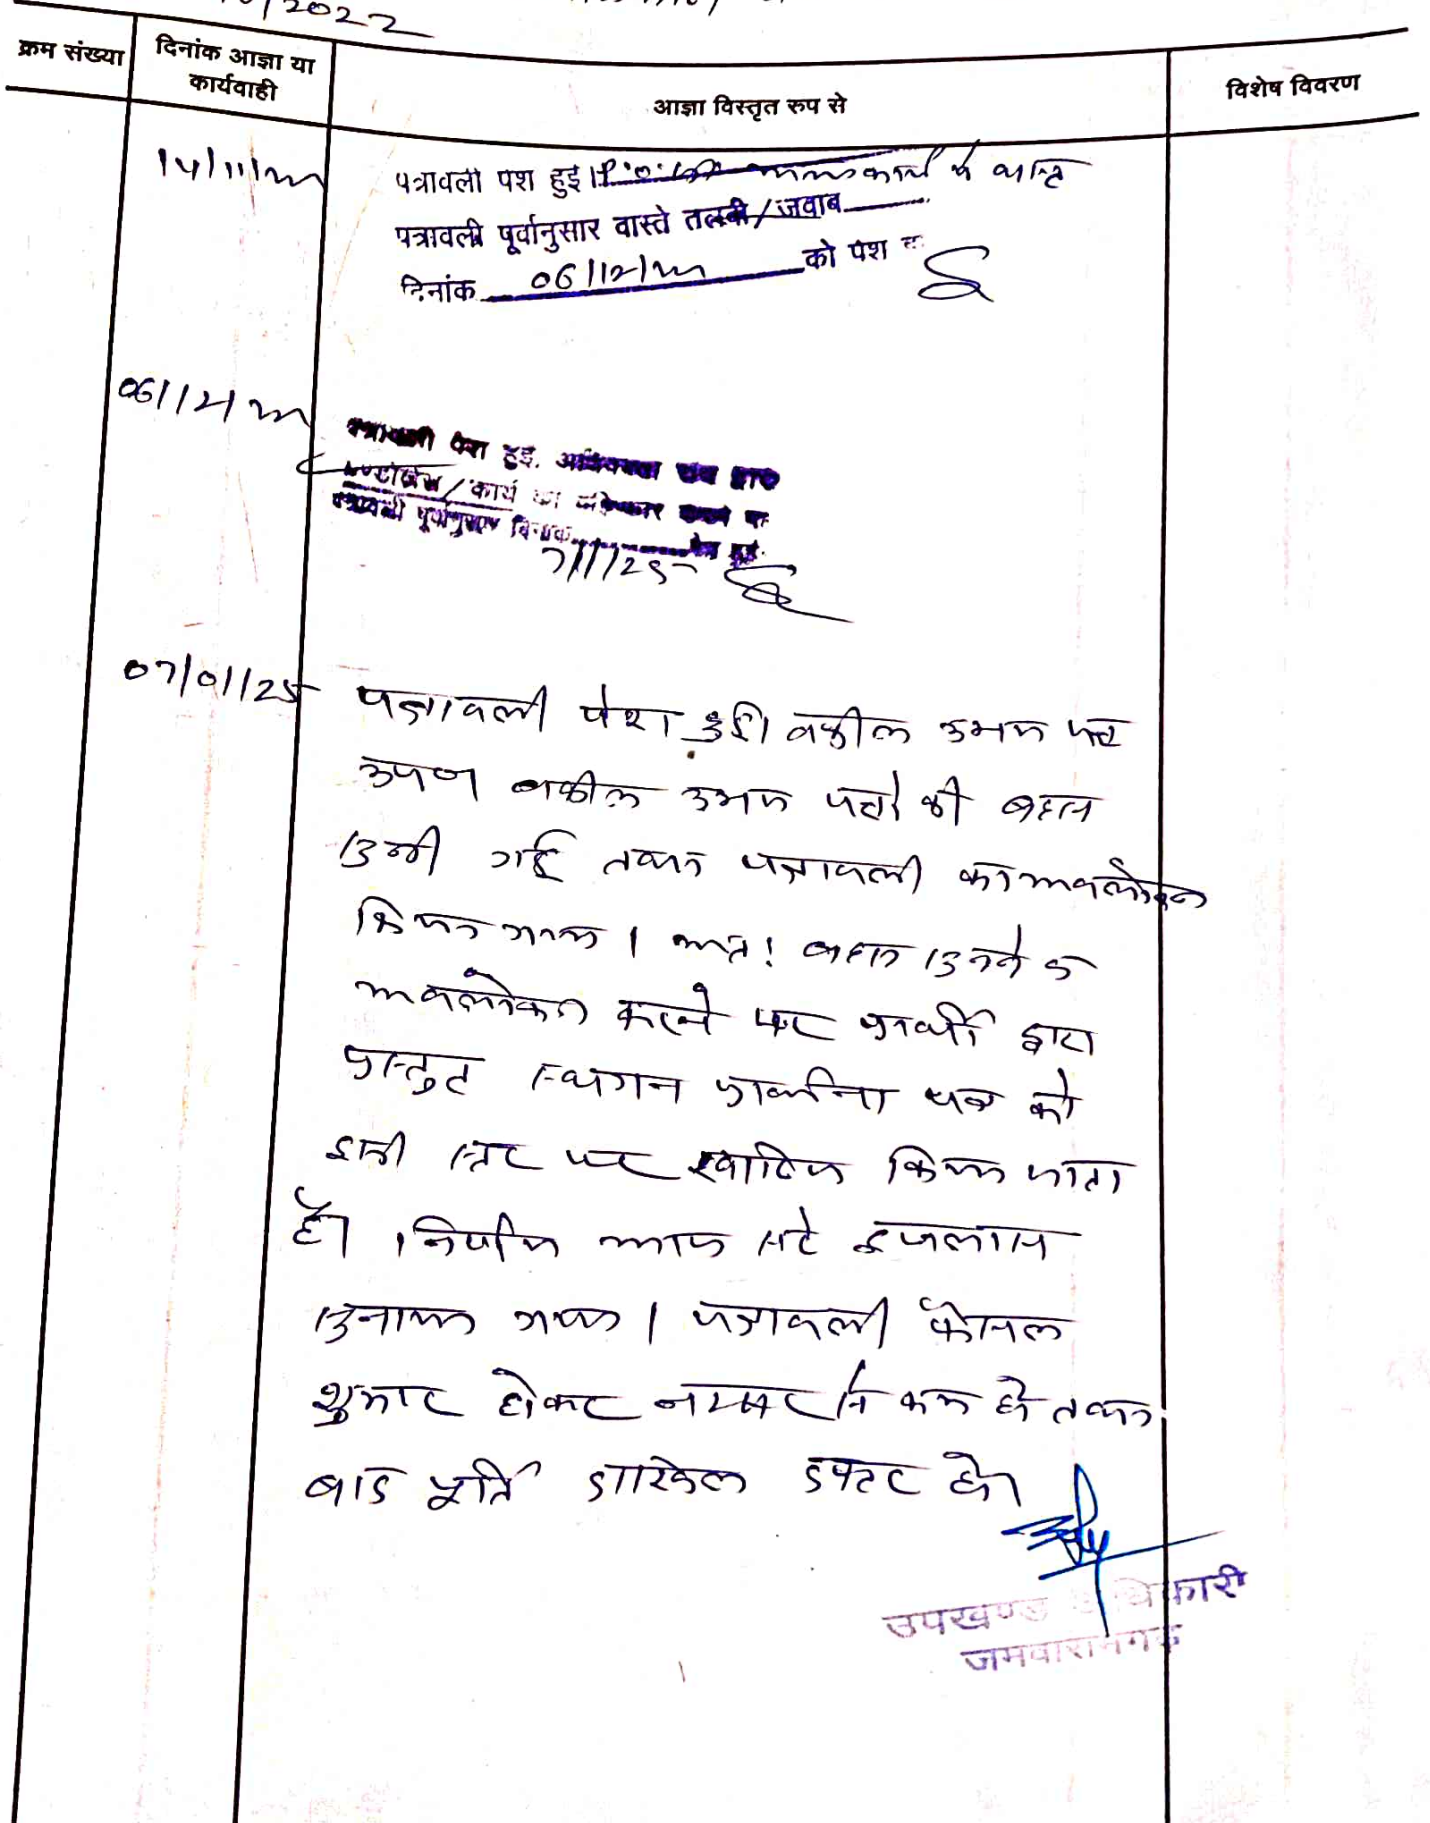 /2022
क्रम संख्या
दिनांक आज्ञा या
कार्यवाही
आज्ञा विस्तृत रुप से
विशेष विवरण
14/11/24
पत्रावली पेश हुई। P.O.
पत्रावली पूर्वानुसार वास्ते तलबी/जवाब
दिनांक 06/12/24 को पेश
06/12/24
पत्रावली पेश हुई.
कार्य का
पत्रावली पूर्वानुसार दिनांक
7/1/25
07/01/25
पत्रावली पेश हुई। वकील उभय पक्ष
उपण वकील उभय पक्षो की बहस
सुनी गई तथा पत्रावली का अवलोकन
किया गया। अतः बहस सुनने व
अवलोकन करने पर प्रार्थी द्वारा
प्रस्तुत स्थगन प्रार्थना पत्र को
इसी स्तर पर खारिज किया जाता
है। निर्णय आज सरे इजलास
सुनाया गया। पत्रावली फैसल
शुमार होकर नम्बर से कम हो तथा
बाद पूर्ति दाखिल दफ्तर हो।
उपखण्ड अधिकारी
जमवारामगढ़